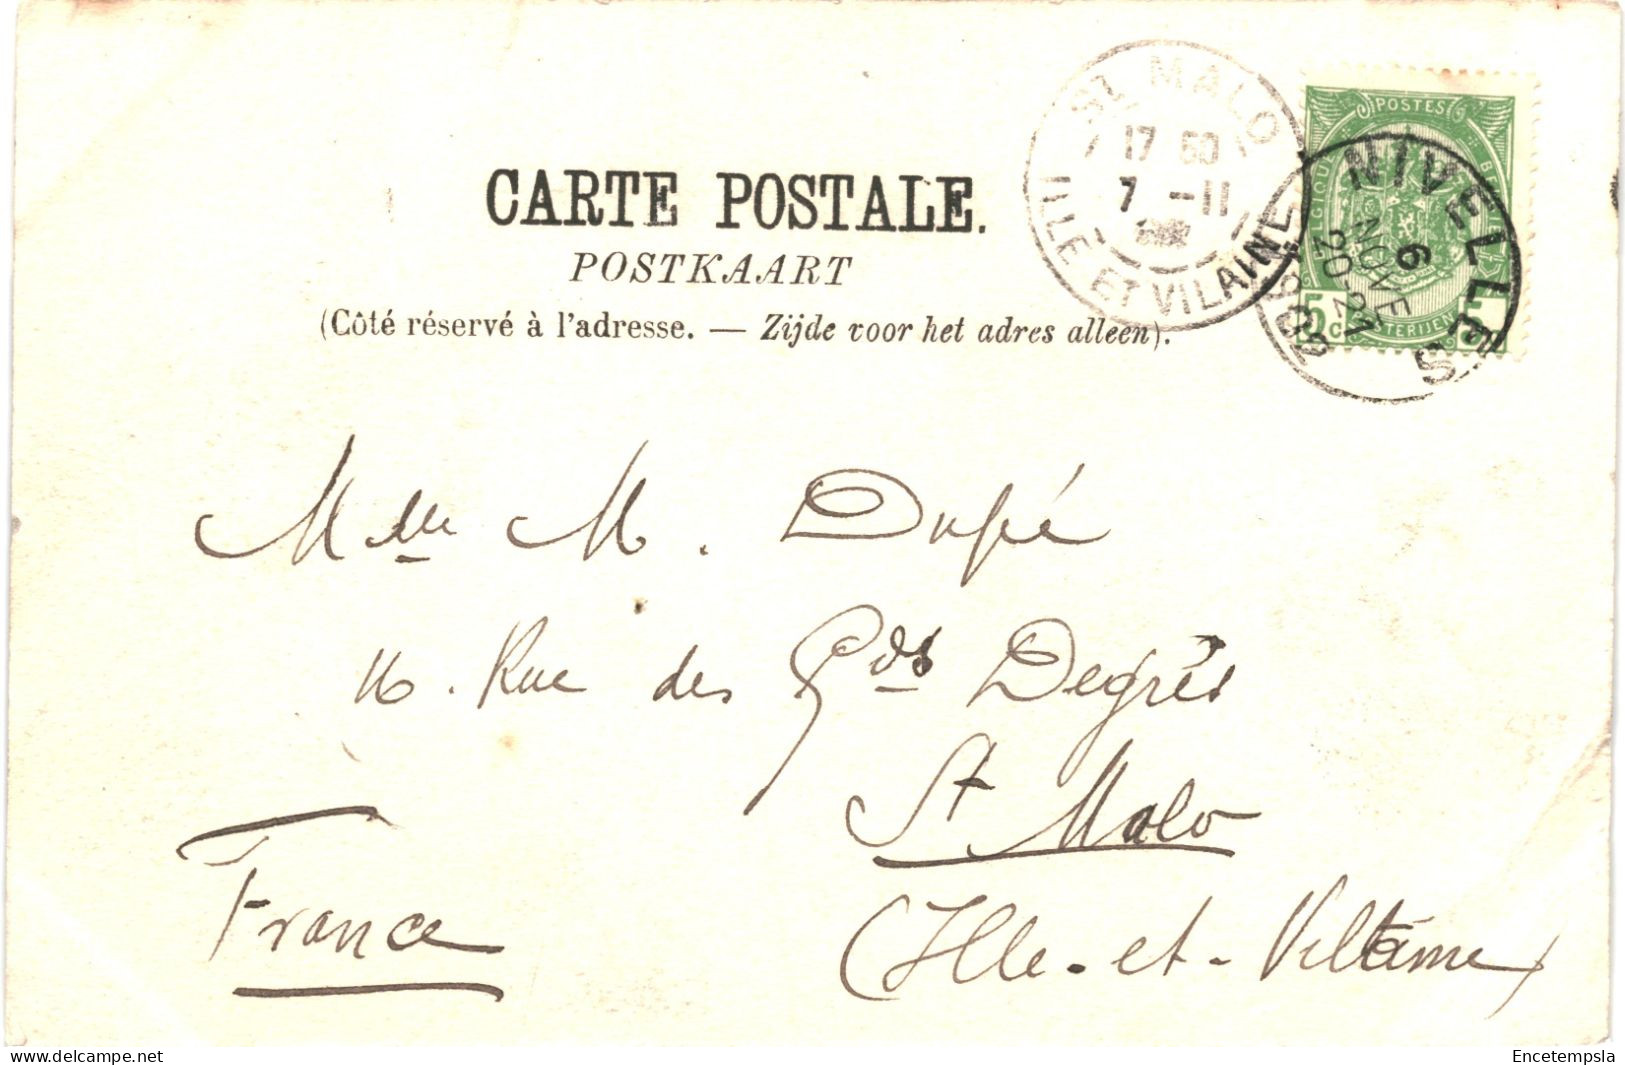 CARTE POSTALE.
POSTKAART
(Côté réservé à l'adresse. — Zijde voor het adres alleen).
ST MALO
17 50
7 -11
ILLE ET VILAINE
POSTES
NIVELLES
6
NOVE
20-21
5c
5
Mlle M. Dupé
16. Rue des Gds Degrés
St Malo
(Ille-et-Villaine)
France
delcampe.net
Encetempsla